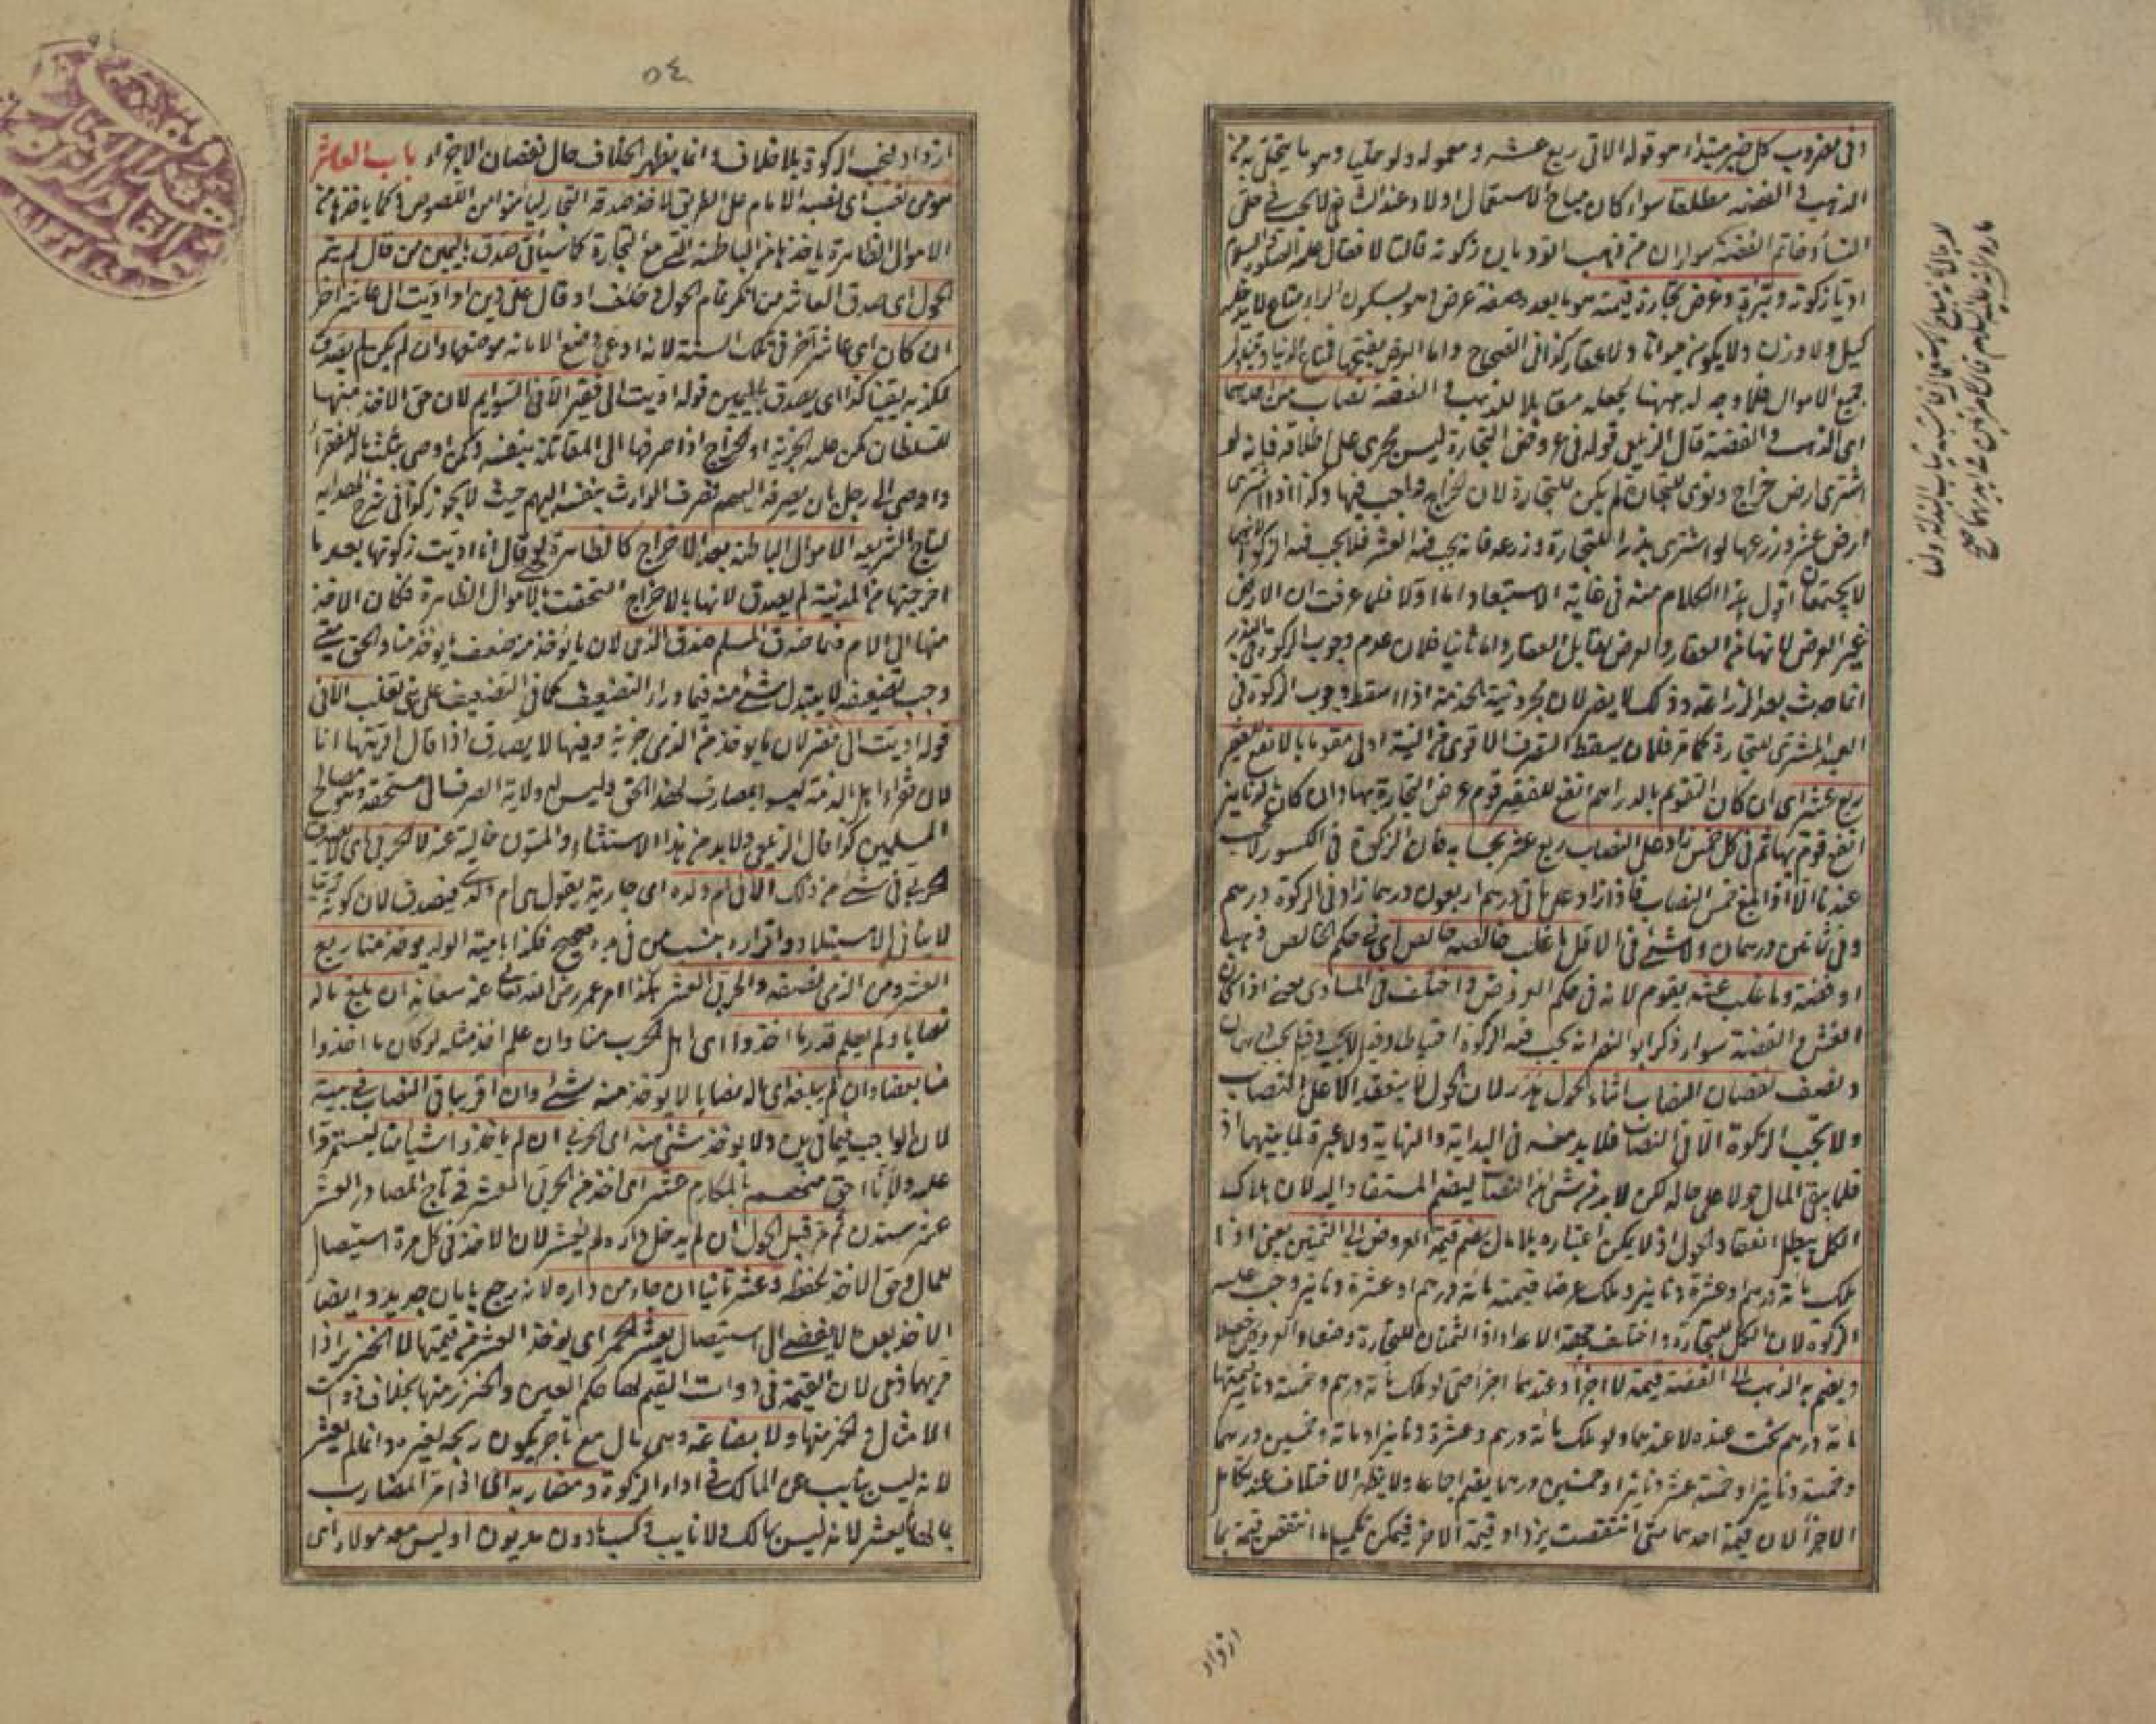 وفي مضروب كل خبر مبتداء هو قوله الاتي ربع عشر ومعموله ولو حليا وهو ما يتحلى به من
الذهب والفضة مطلقا سواء كان مباح الاستعمال اولا وعند الشافعي لا يجب في حلي
النساء وخاتم الفضة
اديا زكوته وعرض تجارة قيمته هو ما بعده صفة عرض وهو بسكون الراء متاع لا يدخله
كيل ولا وزن ولا يكون حيوانا ولا عقارا كذا في الصحاح واما العرض بفتحها فمتاع الدنيا ويتناول
جميع الاموال فلا وجه له ههنا لجعله مقابلا للذهب والفضة نصاب من احدهما
اى الذهب والفضة قال الزيلعي قوله في عروض التجارة ليس يجرى على اطلاقه فانه لو
اشترى ارض خراج ونوى للتجارة لم يكن للتجارة لان الخراج واجب فيها وكذا اذا اشترى
ارض عشر وزرعها او اشترى بذرا للتجارة وزرعه فانه يجب فيه العشر فلا يجب فيه الزكوة لانهما
لا يجتمعان اقول هذا الكلام منه في غاية الاستبعاد اما اولا فلما عرفت ان الارض
غير العرض لانها من العقار والعرض يقابل العقار واما ثانيا فلان عدم وجوب الزكوة في البذر
انما حدث بعد الزراعة وذلك لا يضر لان مجرد نية الخدمة اذا اسقط وجوب الزكوة في
العبد المشترى للتجارة كما مر فلان يسقط التصرف الاقوى من النية اولى مقوما بالانفع للفقير
ربع عشر اى ان كان التقويم بالدراهم انفع للفقير قوم عرض التجارة بها وان كان بالدنانير
انفع قوم بها ثم في كل خمس زاد على النصاب ربع عشر بحسابه فان الزكوة في الكسور لا تجب
عندنا الا اذا بلغ خمس النصاب فاذا زاد على مائتي درهم اربعون درهما زاد في الزكوة درهم
وفي ثمانين درهمان ولا شئ في الاقل ما غلب خالصه خالص اى في حكم الخالص ذهبا
او فضة وما غلب غشه يقوم لانه في حكم العروض واختلف في المساوى يعني اذا كان
الغش والفضة سواء ذكر ابو النصر انه يجب فيه الزكوة احتياطا وقيل لا يجب وقيل يجب درهمان
ونصف نقصان النصاب اثناء الحول هدر لان الحول لا ينعقد الا على النصاب
ولا تجب الزكوة الا في النصاب فلا بد منه في البداية والنهاية ولا عبرة لما بينهما اذ
قلما يبقى المال حولا على حاله لكن لا بد من شئ من النصاب ليضم المستفاد اليه لان هلاك
الكل يبطل انعقاد الحول اذ لا يمكن اعتباره بلا مال يضم قيمة العروض الى الثمنين يعني اذا
ملك مائة درهم او عشرة دنانير وملك عرضا قيمته مائة درهم او عشرة دنانير وجب عليه
الزكوة لان الكل للتجارة واختلف جهة الاعداد اذ الثمنان للتجارة وضعا والعروض جعلا
ويضم به الذهب الى الفضة قيمة لا اجزاء وعندهما اجزاء حتى لو ملك مائة درهم وخمسة دنانير قيمتها
مائة درهم تجب عنده لا عندهما ولو ملك مائة درهم وعشرة دنانير او مائة وخمسين درهما
وخمسة دنانير او خمسة عشر دنانير او خمسين درهما يضم اجماعا ولا يظهر الاختلاف عند تكامل
الاجزاء لان قيمة احدهما متى انتقصت يزداد قيمة الاخر فيمكن تكميل ما انتقص قيمة بما
ازداد
٥٤
ازداد فيجب الزكوة بلا خلاف وانما يظهر الخلاف حال نقصان الاجزاء باب العاشر
هو من نصب اى نصبه الامام على الطريق لاخذ صدقة التجار ليأمنوا من اللصوص وكما ياخذها من
الاموال الظاهرة ياخذها من الباطنة التي مع التجارة كما سيأتي صدق باليمين من قال لم يتم
الحول اى صدق العاشر من انكر تمام الحول وحلف او قال علي دين او اديت الى عاشر اخر
ان كان اى عاشر آخر في تلك السنة لانه ادعى وضع الامانة موضعها وان لم يكن لم يصدق
لكذبه يقينا كذا اى يصدق باليمين قوله اديت الى فقير الا في السوايم لان حق الاخذ منها
للسلطان كمن عليه الجزية او الخراج اذا صرفها الى المقاتلة بنفسه وكمن اوصى بثلث ماله للفقراء
واوصى الى رجل بان يصرفه اليهم فصرف الوارث بنفسه اليهم حيث لا يجوز كذا في شرح الهداية
لتاج الشريعة الاموال الباطنة بعد الاخراج كالظاهرة حتى لو قال انا اديت زكوتها بعد ما
اخرجتها من المدينة لم يصدق لانها بالاخراج التحقت بالاموال الظاهرة فكان الاخذ
منها الى الامام فيما صدق المسلم صدق الذمي لان ما يؤخذ منه ضعف ما يؤخذ منا والحق متى
وجب تضعيفه لا يتبدل شئ منه فيما وراء التضعيف كما في التضعيف على بني تغلب الا في
قوله اديت الى فقير لان ما يؤخذ من الذمي جزية وفيها لا يصدق اذا قال اديتها انا
لان فقراء اهل الذمة ليسوا بمصارف لهذا الحق وليس له ولاية الصرف الى مستحقه وهو مصالح
المسلمين كذا قال الزيلعي ولا بد من هذا الاستثناء والمتون خالية عنه لا الحربي اى لا يصدق
الحربي في شئ من ذلك الا في ام ولده اى جارية يقول هي ام ولدي فيصدق لان كونه حربيا
لا ينافي الاستيلاد واقراره بنسب من في يده صحيح فكذا بامية الولد يؤخذ منا ربع
العشر ومن الذمي نصفه والحربي العشر هكذا امر عمر رضي الله تعالى عنه سعاته ان بلغ ماله
نصابا ولم يعلم قدر ما اخذوا اى اهل الحرب منا وان علم اخذ مثله لو كان ما اخذوا
منا بعضا وان لم يبلغه اى ماله نصابا لا يؤخذ منه شئ وان اقر بباقي النصاب في بيته
لان الواجب فيما في يده ولا يؤخذ شئ منه اى الحربي ان لم ياخذوا شيئا منا ليستمروا
عليه ولانا احق منهم بالمكارم عشر اى اخذ من الحربي العشر في تاج المصادر العشر
عشر ستدن ثم مر قبل الحول ان لم يدخل داره لم يعشر لان الاخذ في كل مرة استيصال
للمال وحق الاخذ لحفظه وعشر ثانيا ان جاء من داره لانه رجع بامان جديد وايضا
الاخذ بعده لا يفضي الى استيصال يعشر الخمر اى يؤخذ العشر من قيمتها لا الخنزير اذا
مر بهما ذمي لان القيمة في ذوات القيم لها حكم العين والخنزير منها بخلاف ذوات
الامثال والخمر منها ولا بضاعة وهي مال مع تاجر يكون ربحه لغيره وانما لم يعشر
لانه ليس بنايب عن المالك في اداء الزكوة ومضاربة اى اذا مر المضارب
بمالها لا يعشر لانه ليس بمالك ولا نايب وكسب مأذون مديون او ليس معه مولاه اى